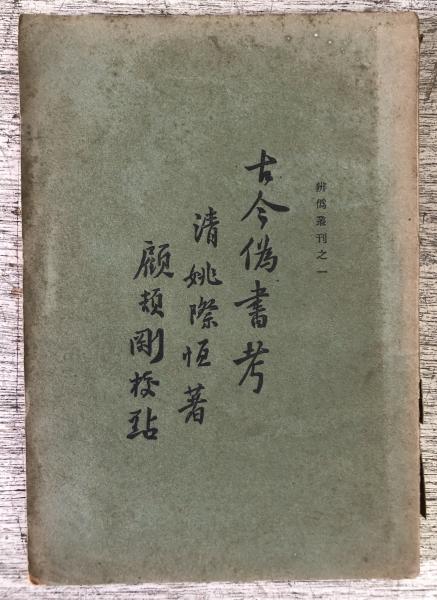 辨偽叢刊之一
古今偽書考
清姚際恆著
顧頡剛校點